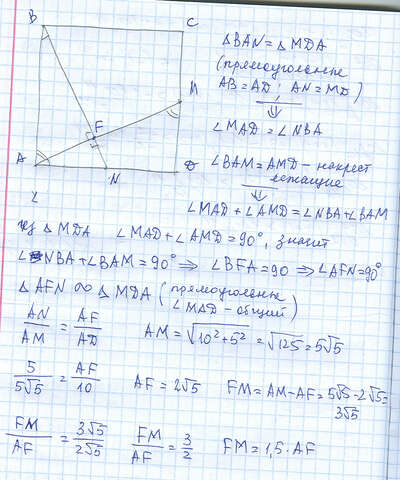 B
C
M
F
A
N
D
△BAN = △MDA
(прямоугольные
AB = AD; AN = MD)
⇓
∠MAD = ∠NBA
∠BAM = AMD - накрест
лежащие
⇓
∠MAD + ∠AMD = ∠NBA + ∠BAM
из △MDA ∠MAD + ∠AMD = 90°, значит
∠NBA + ∠BAM = 90° ⇒ ∠BFA = 90 ⇒ ∠AFN = 90°
△AFN ∞ △MDA (прямоугольные
∠MAD - общий)
AN/AM = AF/AD AM = √(10² + 5²) = √125 = 5√5
5/5√5 = AF/10 AF = 2√5 FM = AM - AF = 5√5 - 2√5 =
3√5
FM/AF = 3√5/2√5 FM/AF = 3/2 FM = 1,5 · AF